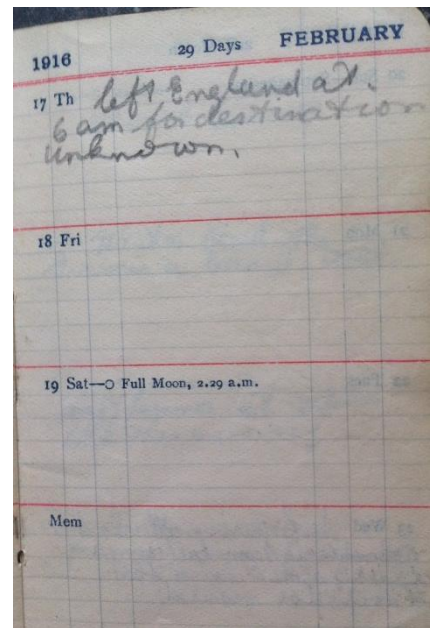 1916 29 Days FEBRUARY
17 Th left England at.
6 am for destination
unknown.
18 Fri
19 Sat—O Full Moon, 2.29 a.m.
Mem